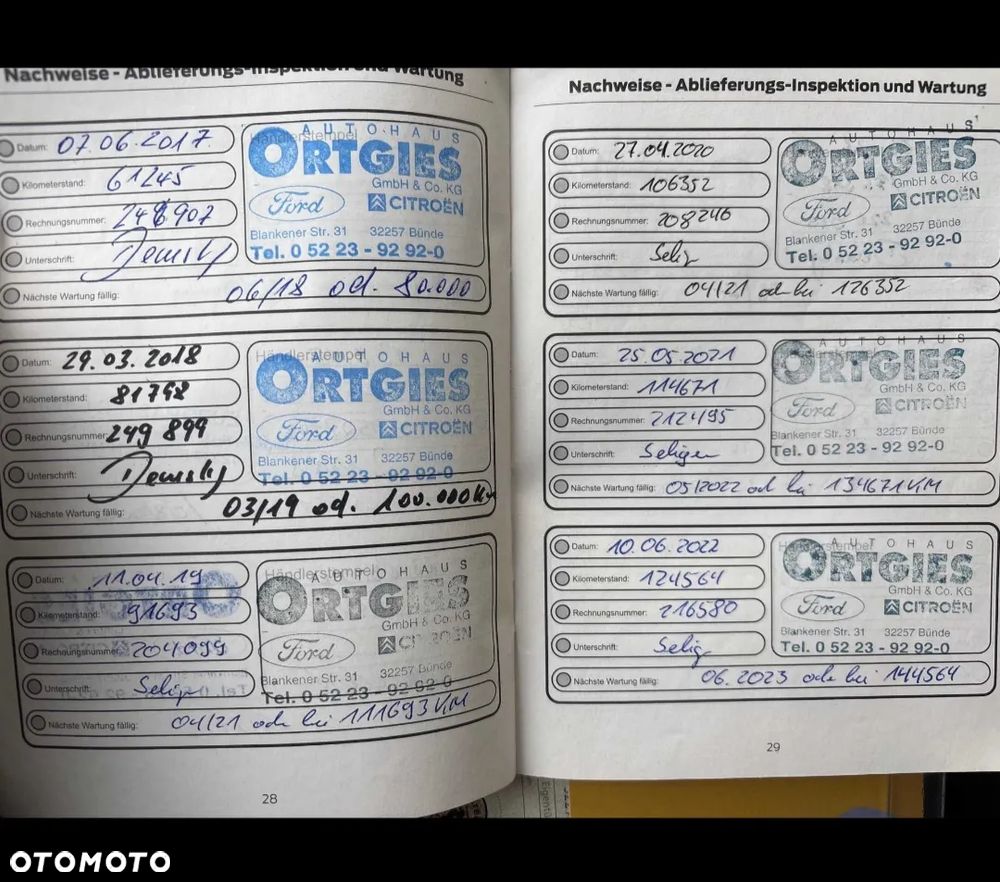 Nachweise - Ablieferungs-Inspektion und Wartung
Datum: 07.06.2017
Kilometerstand: 61245
Rechnungsnummer: 248907
Unterschrift:
Nächste Wartung fällig: 06/18 od. 80.000
Händlerstempel
AUTOHAUS
ORTGIES
GmbH & Co. KG
Ford CITROËN
Blankener Str. 31 32257 Bünde
Tel. 0 52 23 - 92 92-0
Datum: 29.03.2018
Kilometerstand: 81748
Rechnungsnummer: 249 899
Unterschrift:
Nächste Wartung fällig: 03/19 od. 100.000 Km
Händlerstempel
AUTOHAUS
ORTGIES
GmbH & Co. KG
Ford CITROËN
Blankener Str. 31 32257 Bünde
Tel. 0 52 23 - 92 92-0
Datum: 11.04.19
Kilometerstand: 91693
Rechnungsnummer: 204099
Unterschrift:
Nächste Wartung fällig: 04/21 od bei 111693 KM
Händlerstempel
AUTOHAUS
ORTGIES
GmbH & Co. KG
Ford CITROËN
Blankener Str. 31 32257 Bünde
Tel. 0 52 23 - 92 92-0
28
Nachweise - Ablieferungs-Inspektion und Wartung
Datum: 27.04.2020
Kilometerstand: 106352
Rechnungsnummer: 208246
Unterschrift:
Nächste Wartung fällig: 04/21 od bei 126352
AUTOHAUS
ORTGIES
GmbH & Co. KG
Ford CITROËN
Blankener Str. 31 32257 Bünde
Tel. 0 52 23 - 92 92-0
Datum: 25.05.2021
Kilometerstand: 114671
Rechnungsnummer: 212495
Unterschrift:
Nächste Wartung fällig: 05/2022 od bei 134671 KM
AUTOHAUS
ORTGIES
GmbH & Co. KG
Ford CITROËN
Blankener Str. 31 32257 Bünde
Tel. 0 52 23 - 92 92-0
Datum: 10.06.2022
Kilometerstand: 124564
Rechnungsnummer: 216580
Unterschrift:
Nächste Wartung fällig: 06.2023 od bei 144564
Händlerstempel
AUTOHAUS
ORTGIES
GmbH & Co. KG
Ford CITROËN
Blankener Str. 31 32257 Bünde
Tel. 0 52 23 - 92 92-0
29
OTOMOTO